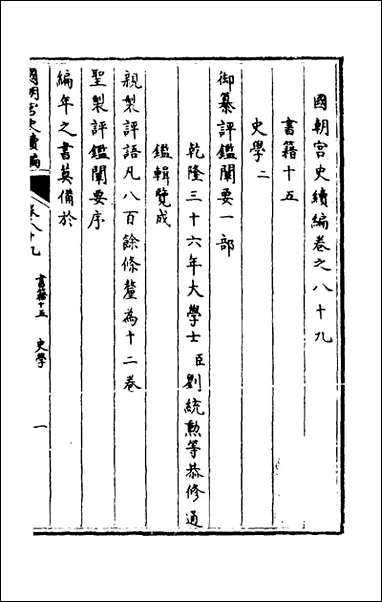 國朝宮史續編卷之八十九
書籍十五
史學二
御纂評鑑闡要一部
乾隆三十六年大學士臣劉統勲等恭修通
鑑輯覽成
親製評語凡八百餘條釐為十二卷
聖製評鑑闡要序
編年之書莫備於
國朝宮史續編
卷八十九
書籍十五 史學
一